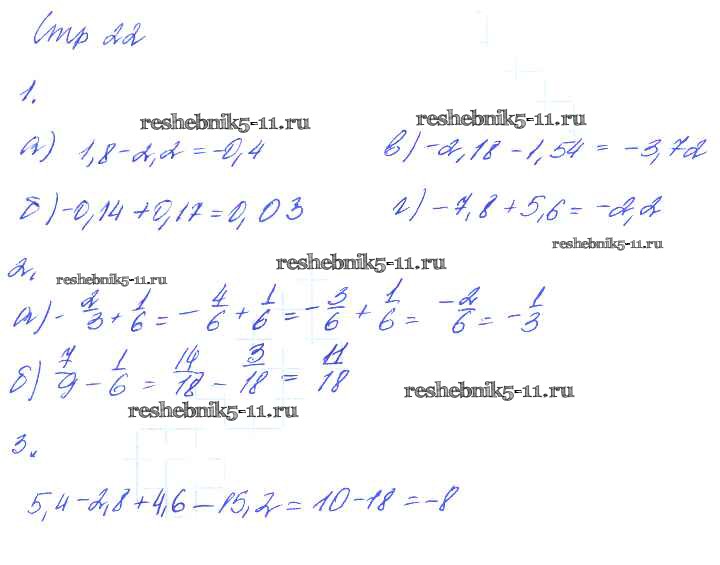 Стр 22
1.
reshebnik5-11.ru reshebnik5-11.ru
а) 1,8-2,2=-0,4 в) -2,18-1,54=-3,72
б) -0,14+0,17=0,03 г) -7,8+5,6=-2,2
reshebnik5-11.ru
2. reshebnik5-11.ru reshebnik5-11.ru
а) -2/3+1/6=-4/6+1/6=-3/6+1/6=-2/6=-1/3
б) 7/9-1/6=14/18-3/18=11/18
reshebnik5-11.ru reshebnik5-11.ru
3.
5,4-2,8+4,6-15,2=10-18=-8